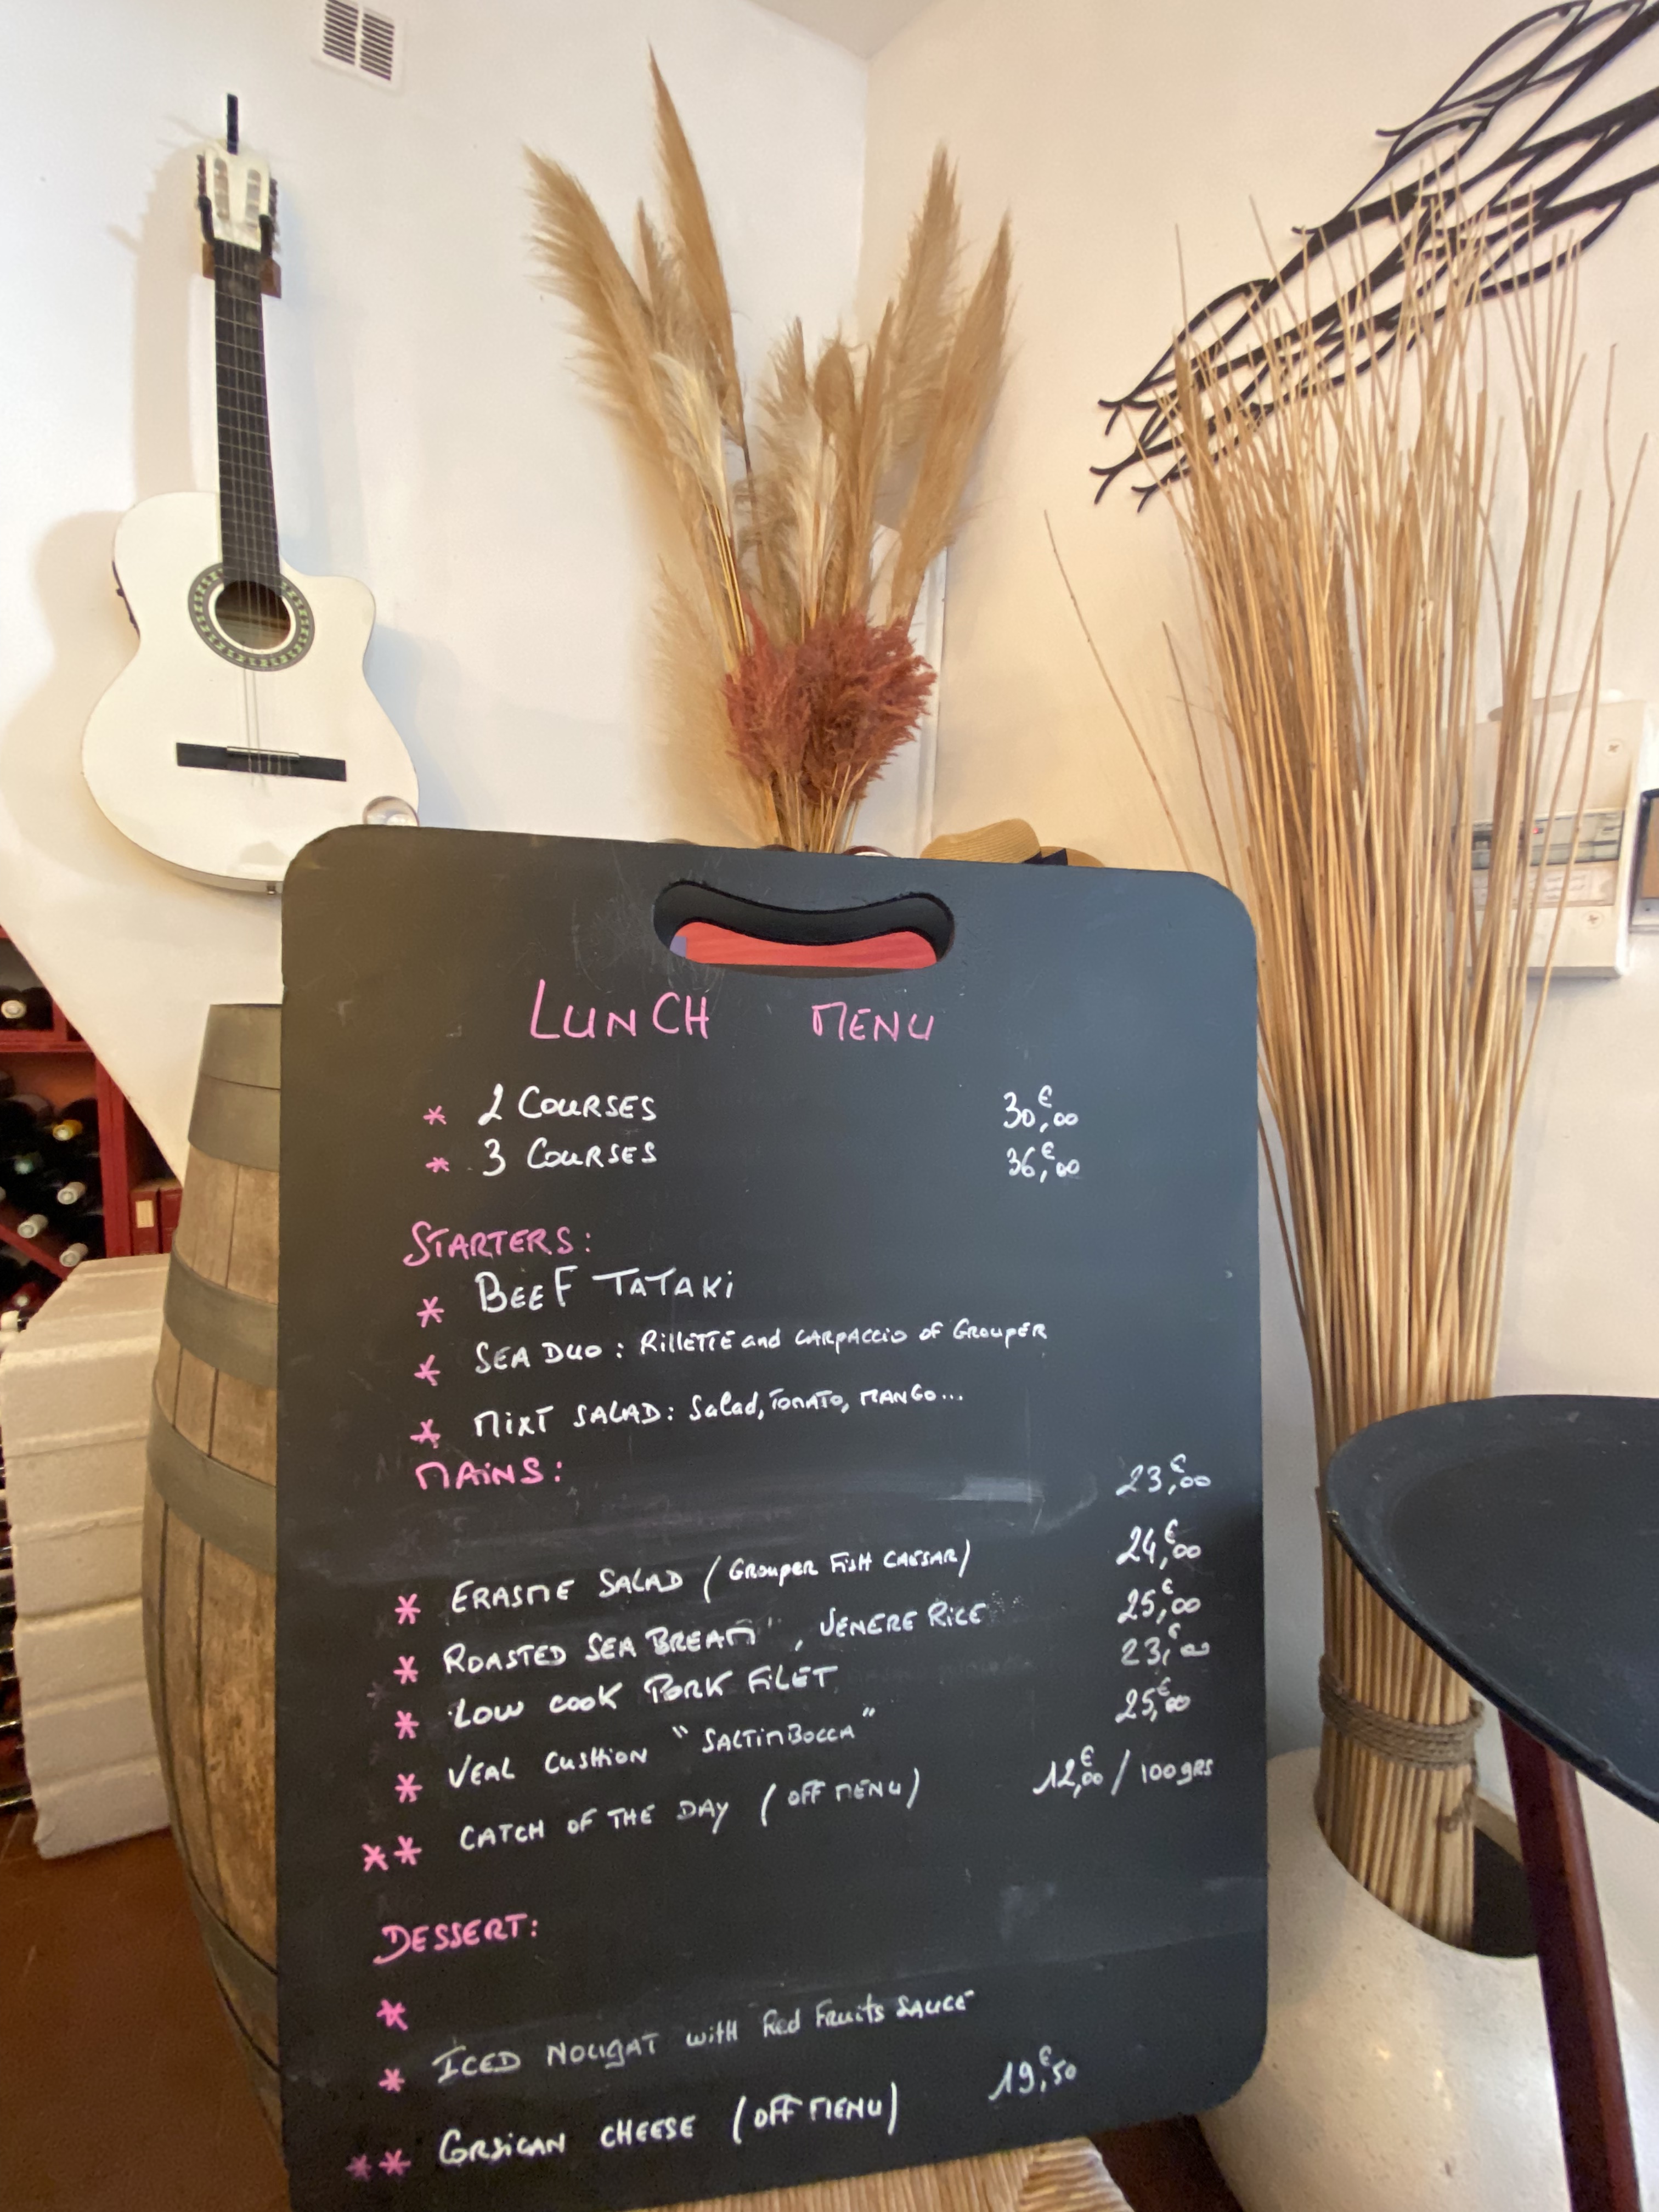 LUNCH MENU
* 2 COURSES 30,€00
* 3 COURSES 36,€00
STARTERS:
* BEEF TATAKi
* SEA DUO: RillETTE and CARPACCiO of GROUPER
* MiXT SALAD: Salad, TOMATO, MANGO...
MAiNS: 23,€00
* ERASME SALAD (GROUPER FiSH CAESAR) 24,€00
* ROASTED SEA BREAM", VENERE RiCE 25,€00
* LOW COOK PORK FiLET 23,€00
* VEAL CUSHiON "SALTiMBOCCA" 25,€00
** CATCH OF THE DAY (OFF MENU) 12,€00 / 100 gRS
DESSERT:
*
* ICED NOUGAT witH Red Fruits SAUCE
** CORSICAN CHEESE (OFF MENU) 19,€50